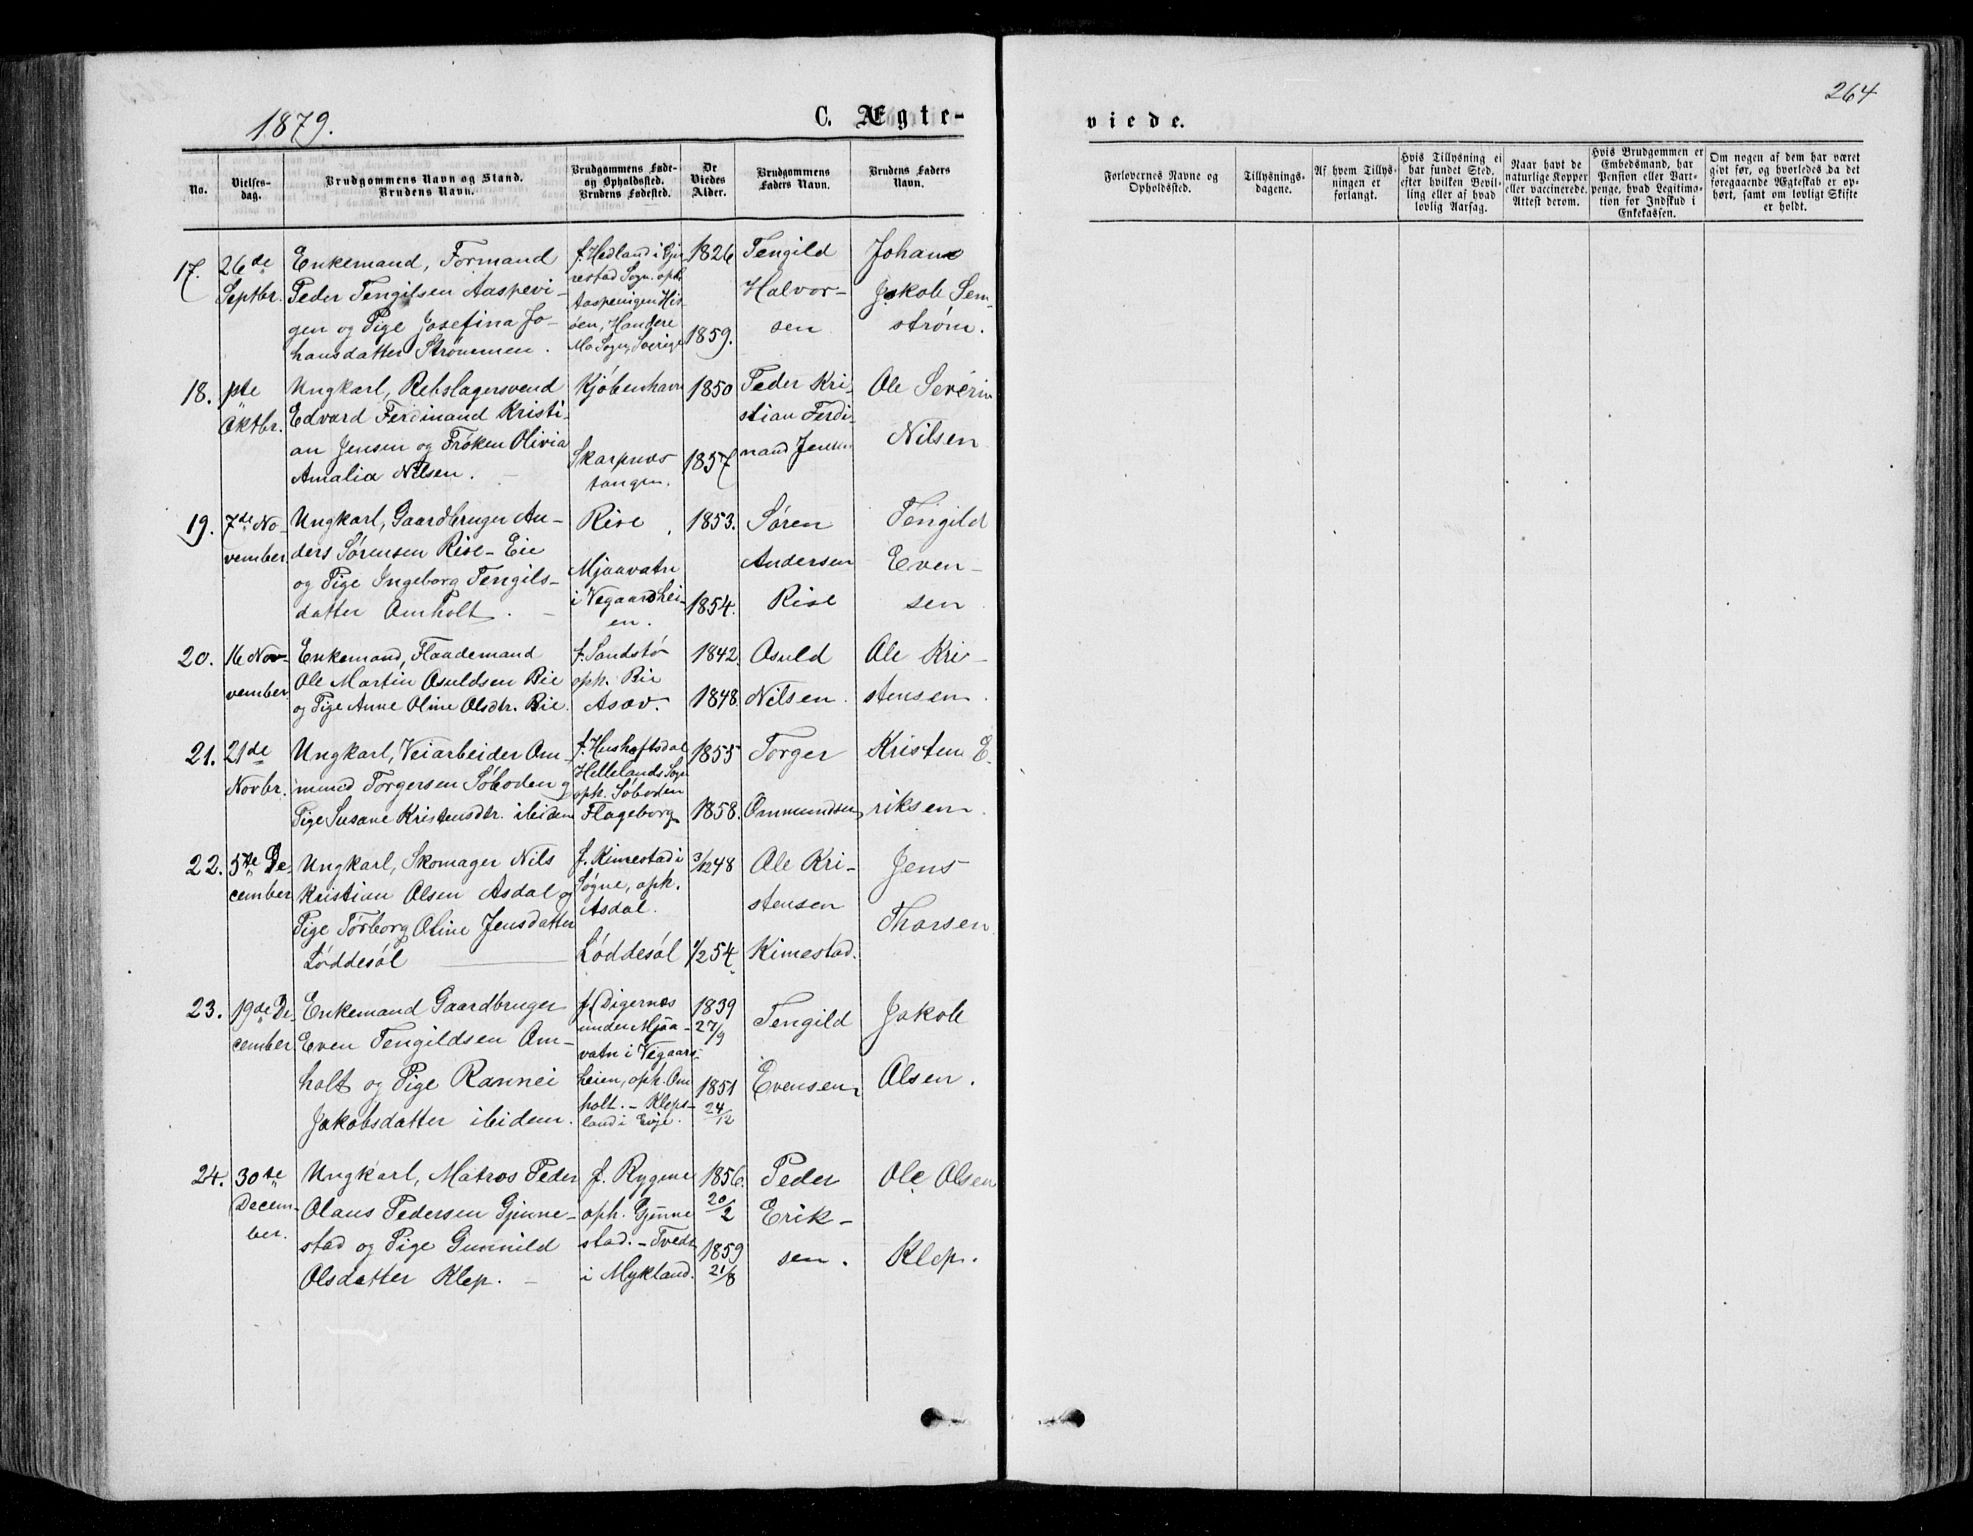 264
1879.
C. Ægte-
viede.
No.
Vielses-
dag.
Brudgommens Navn og Stand.
Brudens Navn.
Brudgommens Føde-
og Opholdssted.
Brudens Fødested.
De
Viedes
Alder.
Brudgommens
Faders Navn.
Brudens Faders
Navn.
Forlovernes Navne og
Opholdssted.
Tillysnings-
dagene.
Af hvem Tillys-
ningen er
forlangt.
Hvis Tillysning ei
har fundet Sted,
efter hvilken Bevil-
ling eller af hvad
lovlig Aarsag.
Naar havt de
naturlige Kopper
eller vaccinerede.
Attest derom.
Hvis Brudgommen er
Embedsmand, har
Pension eller Vart-
penge, hvad Legitima-
tion for Indskud i
Enkekassen.
Om nogen af dem har været
givt før, og hvorledes da det
foregaaende Ægteskab er op-
hørt, samt om lovligt Skifte
er holdt.
17.
26de
Septbr.
Enkemand, Formand
Peder Tengilsen Aaspevi-
gen og Pige Josefina Jo-
hansdatter Strømmen.
f. Hedland i Gjer
restad Sogn. oph.
Aaspevigen His-
øen,
Mo Sogn, Sverige
1826
1859.
Tengild
Halvor-
sen
Johan
Jakob Sem-
strøm.
18.
Oktbr.
Ungkarl, Rebslagersvend
Edvard Ferdinand Kristi-
an Jensen og Frøken Olivia
Amalia Nilsen.
Kjøbenhavn
Skarpnes
tangen.
1850
1857
Peder Kri-
stian Ferdi-
nand Jensen
Ole Severin
Nilsen
19.
7de No
vember.
Ungkarl, Gaardbruger An-
ders Sørensen Rise-Eie
og Pige Ingeborg Tengils-
datter Omholt.
Rise
Mjaavatn
i Vegaardshei-
en.
1853.
1854.
Søren
Andersen
Rise
Tengild
Even-
sen
20.
16 Nov-
vember
Enkemand, Flaademand
Ole Martin Osuldsen Bie
og Pige Anne Oline Olsdtr. Bie.
f. Sandstø
oph. Bie
Asav.
1842.
1848.
Osuld
Nilsen.
Ole Kri-
stensen.
21.
21de
Novbr.
Ungkarl, Veiarbeider Om-
mund Torgersen Søboden og
Pige Susane Kristensdtr. ibidem
f. Hushoftsdal
Hellelands Sogn
oph. Søboden
Flageborg
1855
1858.
Torger
Ommundsen
Kristen E-
riksen.
22.
5te De-
cember
Ungkarl, Skomager Nils
Kristian Olsen Asdal og
Pige Torborg Oline Jensdatter
Løddesøl
f. Kimestad i
Søgne, oph.
Asdal.
Løddesøl
3/12 48
1/2 54
Ole Kri-
stensen
Kimestad.
Jens
Tharsen.
23.
19de De
cember
Enkemand Gaardbruger
Even Tengildsen Om-
holt og Pige Rannei
Jakobsdatter ibidem.
f. Digernes
under Mjaa-
vatn i Vegaars-
heien, oph. Om
holt. - Kleps-
land i Evje.
1839
27/9
1851
24/12
Tengild
Evensen
Jakob
Olsen.
24.
30te
Decem-
ber.
Ungkarl, Matros Peder
Olaus Pedersen Gjenne-
stad og Pige Gunnild
Olsdatter Klep.
f. Rygene
oph. Gjenne
stad. - Tvedt
i Mykland.
1856.
20/2
1859
21/8
Peder
Erik-
sen.
Ole Olsen
Klep.